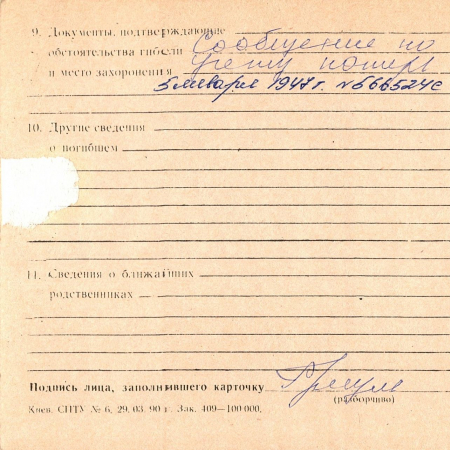 9. Документы, подтверждающие
обстоятельства гибели Сообщение по
и место захоронения учету потерь
5 января 1947 г. №566524с
10. Другие сведения
о погибшем
11. Сведения о ближайших
родственниках
Подпись лица, заполнившего карточку
(разборчиво)
Киев. СПТУ № 6, 29. 03. 90 г. Зак. 409—100 000.